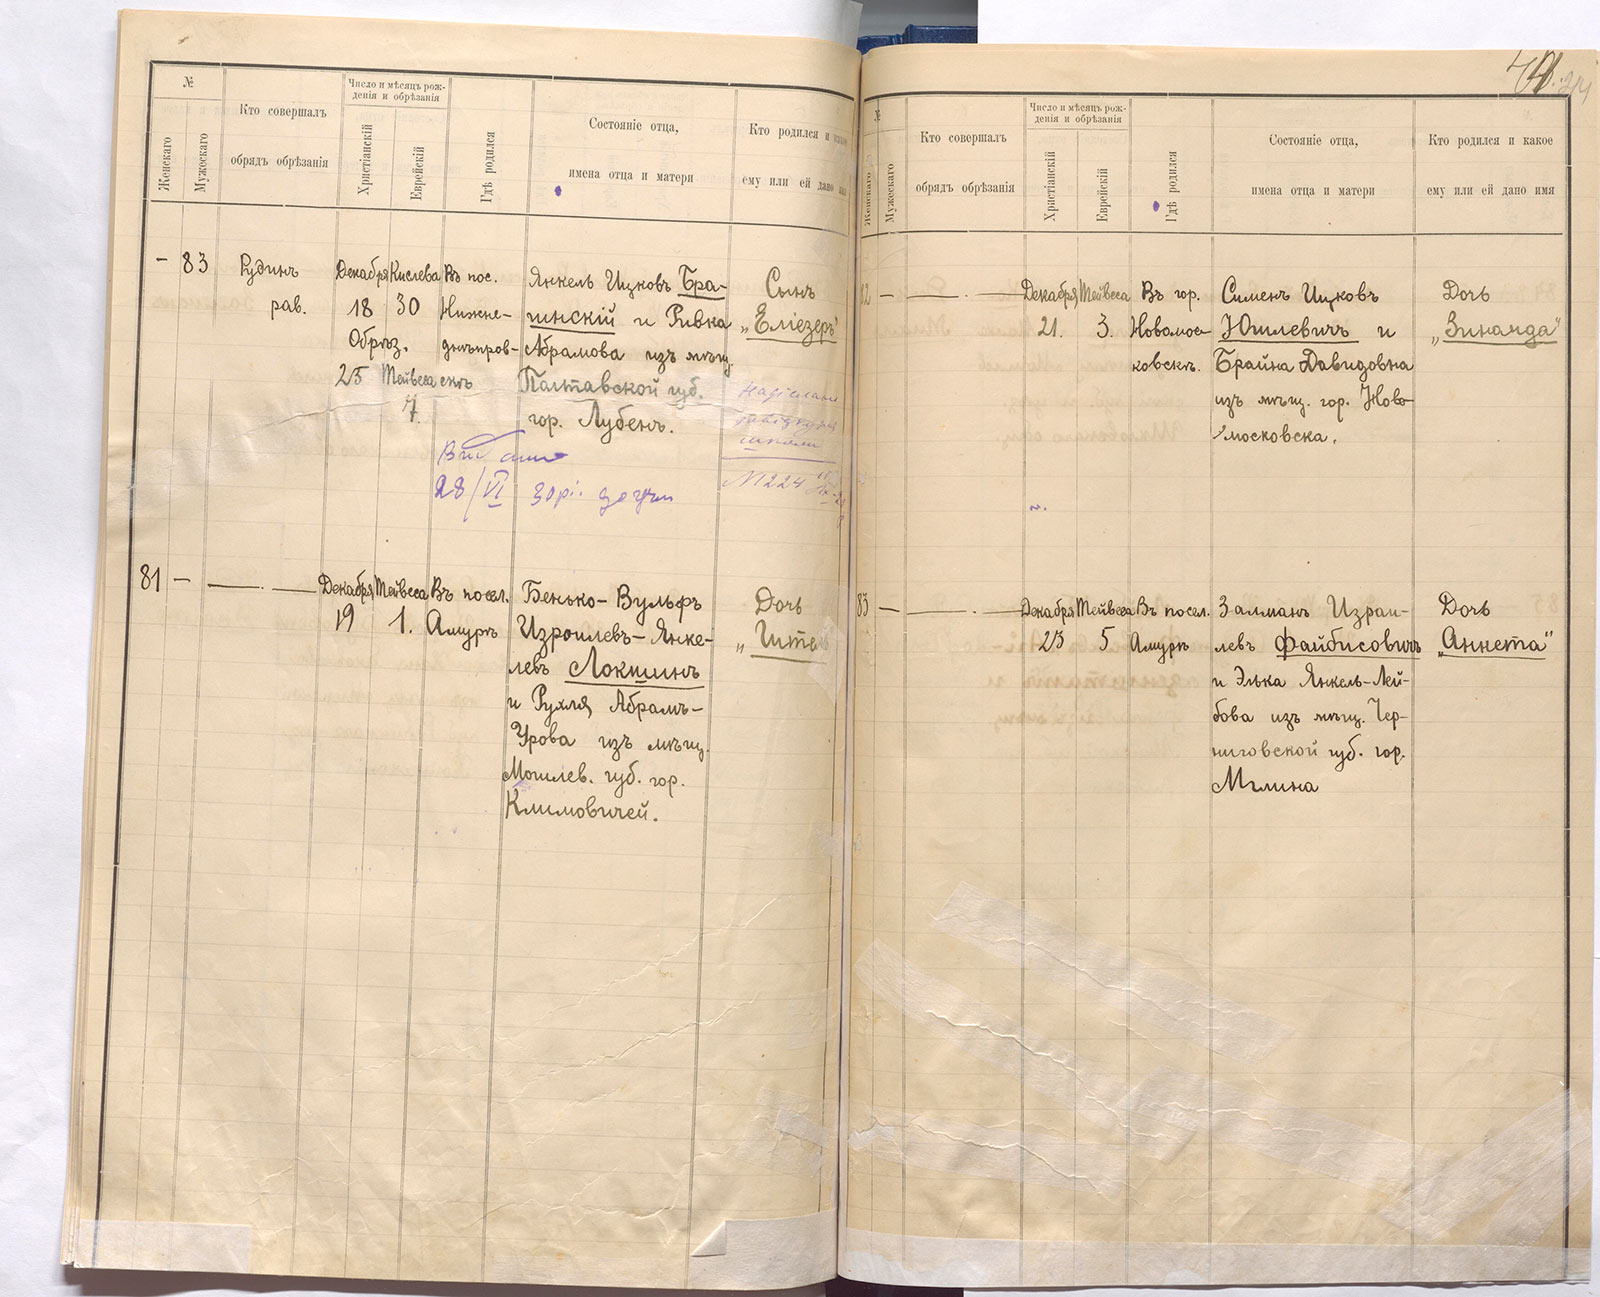 №
Женскаго
Мужескаго
Кто совершалъ
обрядъ обрѣзанія
Число и мѣсяцъ рож-
денія и обрѣзанія
Христіанскій
Еврейскій
Гдѣ родился
Состояніе отца,
имена отца и матери
Кто родился и
ему или ей дано
- 83
Рудинъ
рав.
Декабря
18
Обрѣз.
25
Кислева
30
Тейвеса
7
Въ пос.
Нижне-
днѣпров-
скѣ
Янкель Ицковъ Бра-
гинскій и Ривка
Абрамова изъ мѣщ.
Полтавской губ.
гор. Лубенъ.
Сынъ
„Еліезеръ"
28/VI
№ 1224
81 -
Декабря
19
Тейвеса
1.
Въ посел.
Амурѣ
Бенько-Вульфъ
Изроилевъ-Янке-
левъ Локшинъ
и Рухля Абрамъ-
Урова изъ мѣщ.
Могилев. губ. гор.
Климовичей.
Дочь
№
Женскаго
Мужескаго
Кто совершалъ
обрядъ обрѣзанія
Число и мѣсяцъ рож-
денія и обрѣзанія
Христіанскій
Еврейскій
Гдѣ родился
Состояніе отца,
имена отца и матери
Кто родился и какое
ему или ей дано имя
82 -
Декабря
21.
Тейвеса
3.
Въ гор.
Новомос-
ковскѣ.
Сименъ Ицковъ
Юшлевичъ и
Брайна Давидовна
изъ мѣщ. гор. Ново-
московска.
Дочь
„Зинаида"
83 -
Декабря
23
Тейвеса
5
Въ посел.
Амурѣ
Залманъ Израи-
левъ Файбисовичъ
и Элька Янкель-Лей-
бова изъ мѣщ. Чер-
ниговской губ. гор.
Мглина
Дочь
„Аннета"